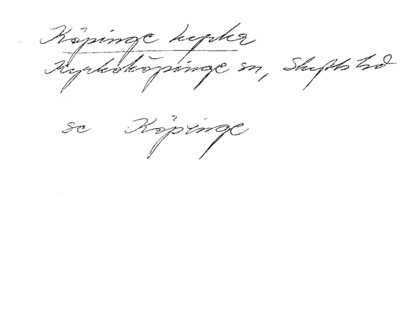 Köpinge kyrka
Kyrkoköpinge sn, Skytts hd
se Köpinge